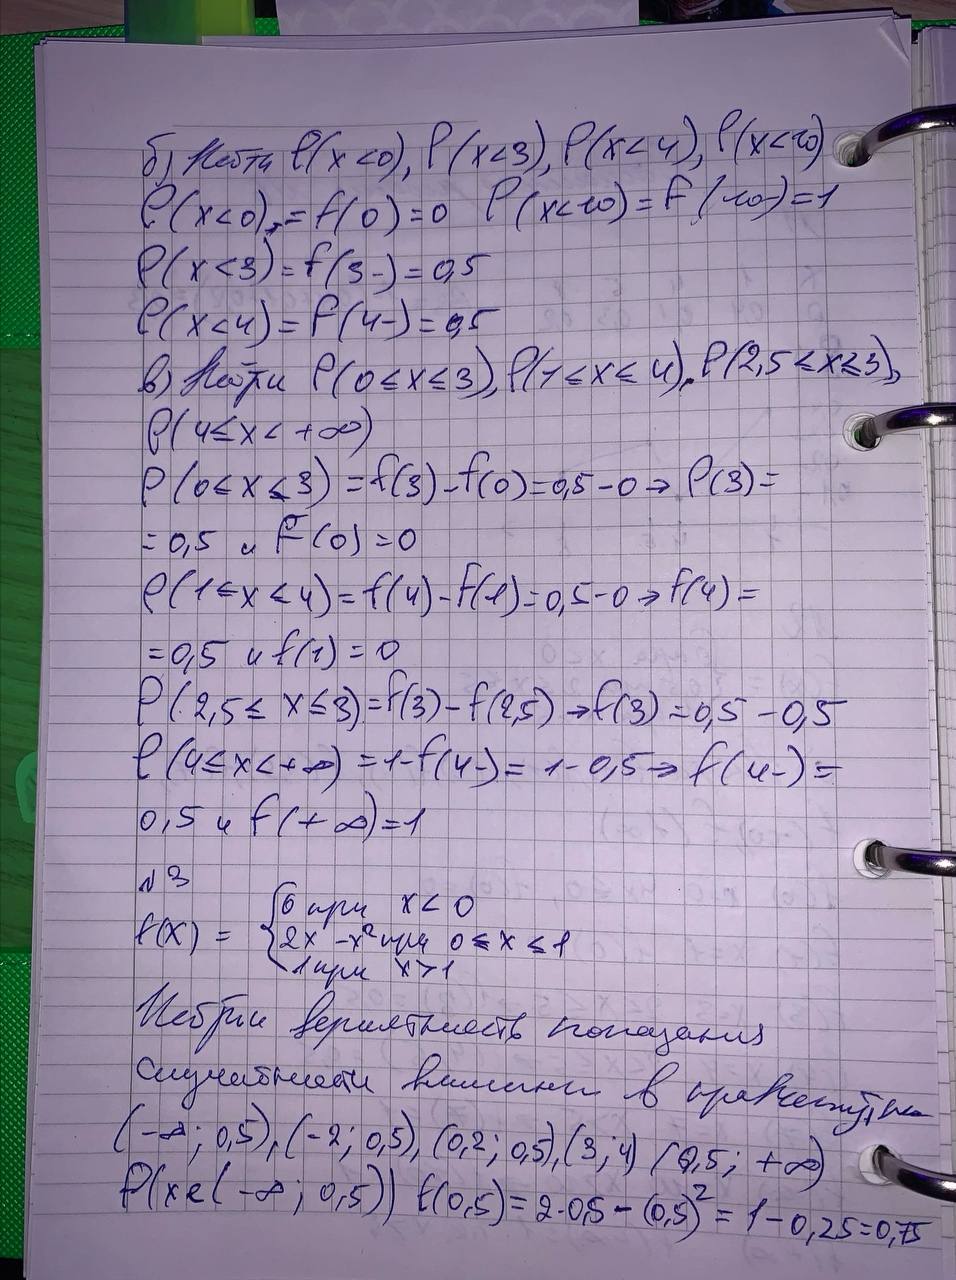 б) Найти P(x<0), P(x<3), P(x<4), P(x<10)
P(x<0) = f(0)=0 P(x<10)=F(10-)=1
P(x<3)=f(3-)=0,5
P(x<4)=F(4-)=0,5
в) Найти P(0≤x≤3), P(1≤x≤4), P(2,5≤x≤3),
P(4≤x<+∞)
P(0≤x≤3)=f(3)-f(0)=0,5-0→P(3)=
=0,5 и F(0)=0
P(1≤x≤4)=f(4)-f(1)=0,5-0→f(4)=
=0,5 и f(1)=0
P(2,5≤x≤3)=f(3)-f(2,5)→f(3)=0,5-0,5
P(4≤x<+∞)=1-f(4-)=1-0,5→f(4-)=
0,5 и f(+∞)=1
№3
f(x) = { 0 при x<0
2x-x² при 0≤x≤1
1 при x>1
Найти вероятность попадания
случайности величины в промежутки
(-∞; 0,5), (-2; 0,5), (0,2; 0,5), (3; 4) (0,5; +∞)
P(xϵ(-∞; 0,5)) f(0,5)=2·0,5-(0,5)²=1-0,25=0,75